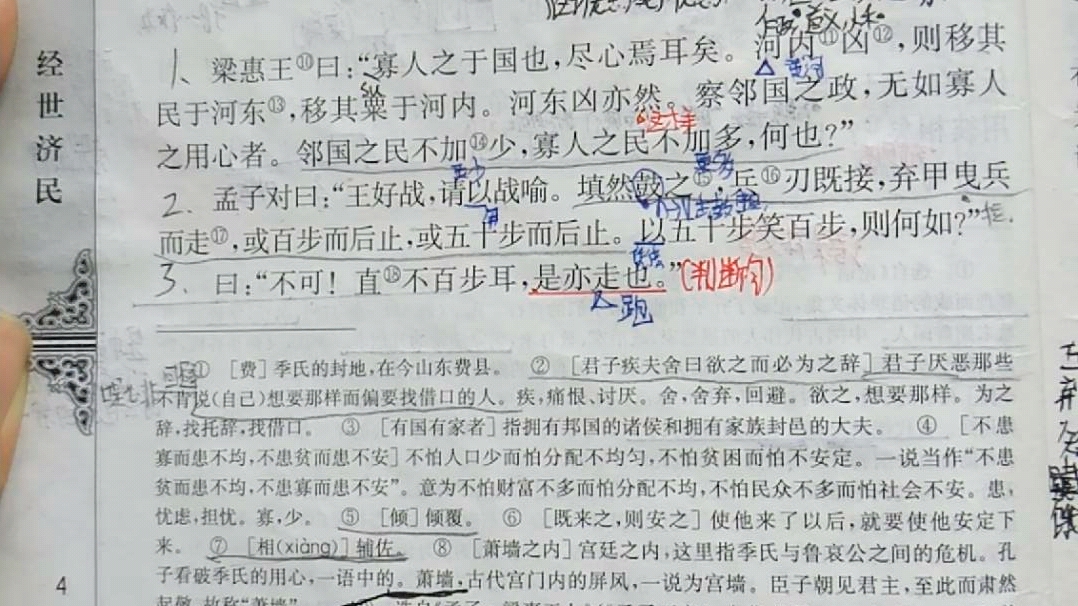 经世济民
1、梁惠王⑩曰：“寡人之于国也，尽心焉耳矣。河内⑪凶⑫，则移其
民于河东⑬，移其粟于河内。河东凶亦然。察邻国之政，无如寡人
之用心者。邻国之民不加⑭少，寡人之民不加多，何也？”
这样
2、孟子对曰：“王好战，请以战喻。填然鼓之⑮，兵⑯刃既接，弃甲曳兵
而走⑰，或百步而后止，或五十步而后止。以五十步笑百步，则何如？”
3、曰：“不可！直⑱不百步耳，是亦走也。”（判断句）
跑
① ［费］季氏的封地，在今山东费县。 ② ［君子疾夫舍曰欲之而必为之辞］君子厌恶那些
不肯说（自己）想要那样而偏要找借口的人。疾，痛恨、讨厌。舍，舍弃，回避。欲之，想要那样。为之
辞，找托辞，找借口。 ③ ［有国有家者］指拥有邦国的诸侯和拥有家族封邑的大夫。 ④ ［不患
寡而患不均，不患贫而患不安］不怕人口少而怕分配不均匀，不怕贫困而怕不安定。一说当作“不患
贫而患不均，不患寡而患不安”。意为不怕财富不多而怕分配不均，不怕民众不多而怕社会不安。患，
忧虑，担忧。寡，少。 ⑤ ［倾］倾覆。 ⑥ ［既来之，则安之］使他来了以后，就要使他安定下
来。 ⑦ ［相(xiàng)］辅佐。 ⑧ ［萧墙之内］宫廷之内，这里指季氏与鲁哀公之间的危机。孔
子看破季氏的用心，一语中的。萧墙，古代宫门内的屏风，一说为宫墙。臣子朝见君主，至此而肃然
4